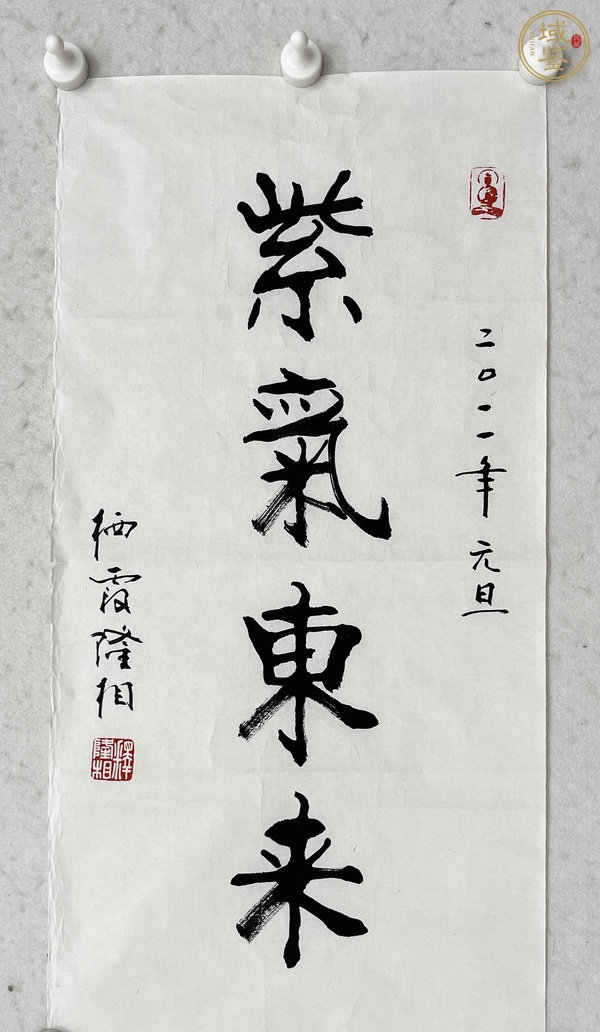 二〇一一年元旦
紫氣東来
栖霞隆相
释隆相
域鑒